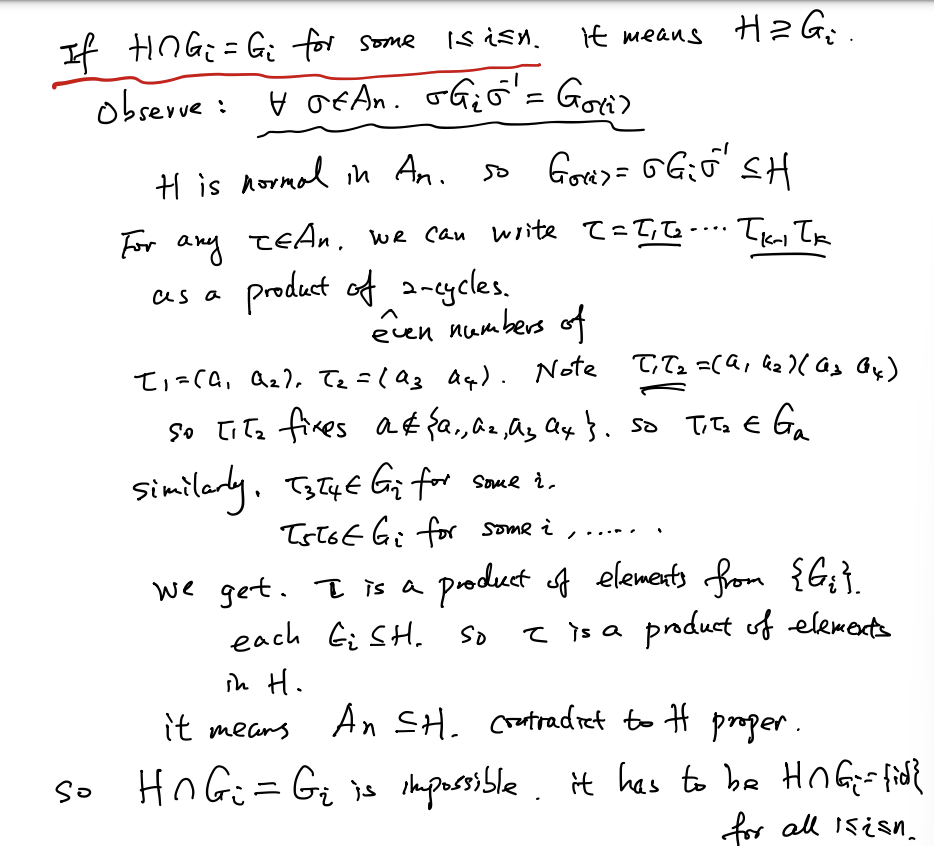 If H∩Gᵢ = Gᵢ for some 1≤i≤n. it means H ⊇ Gᵢ.
Observe: ∀ σ∈An. σGᵢσ⁻¹ = G_σ(i)
H is normal in An. so G_σ(i) = σGᵢσ⁻¹ ⊆ H
For any τ∈An, we can write τ = τ₁τ₂ ···· τₖ₋₁τₖ
as a product of 2-cycles.
^
even numbers of
τ₁ = (a₁ a₂), τ₂ = (a₃ a₄). Note τ₁τ₂ = (a₁ a₂)(a₃ a₄)
so τ₁τ₂ fixes a∉{a₁,a₂,a₃ a₄}. so τ₁τ₂ ∈ Gₐ
similarly. τ₃τ₄∈ Gᵢ for some i.
τ₅τ₆∈ Gᵢ for some i, ......
we get. τ is a product of elements from {Gᵢ}.
each Gᵢ ⊆H. so τ is a product of elements
in H.
it means An ⊆H. contradict to H proper.
so H∩Gᵢ = Gᵢ is impossible. it has to be H∩Gᵢ={id}
for all 1≤i≤n.